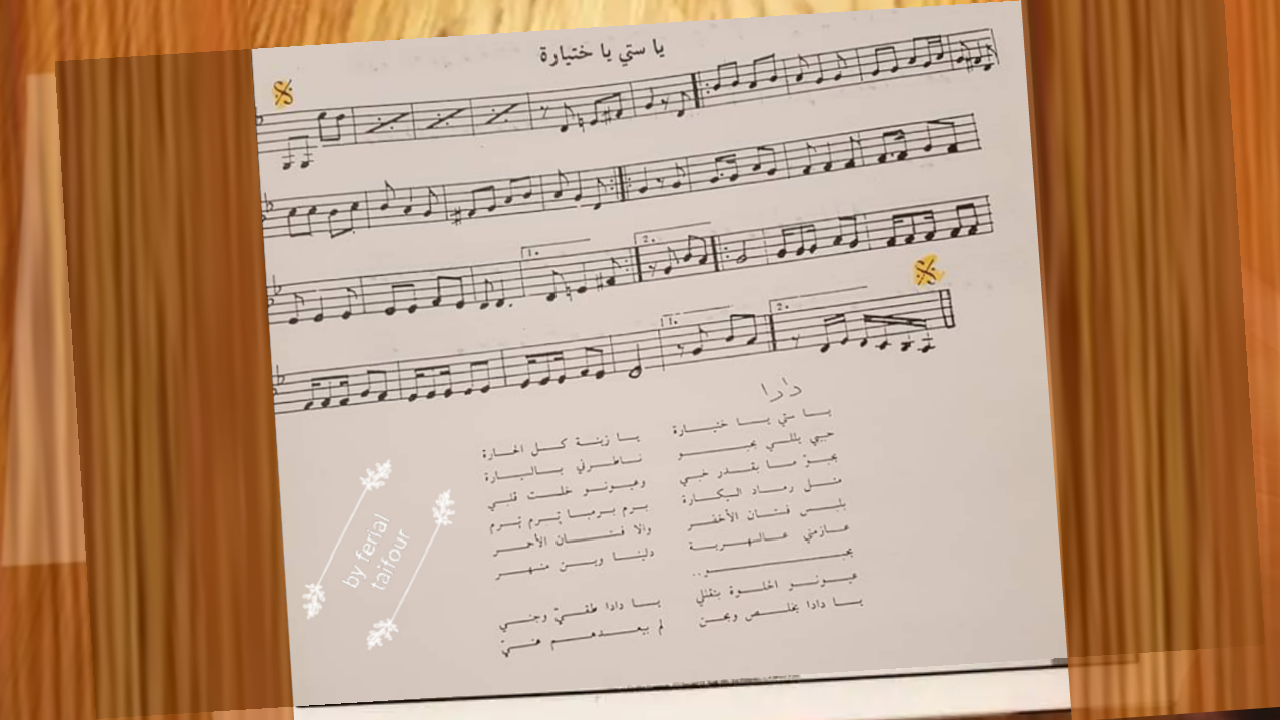 يا ستي يا ختيارة
1.
2.
1.
2.
دارا
يا ستي يا ختيارة يا زينة كل الحارة
حبي يللي بحبو ناطرني بالسيارة
بحبو ما بقدر خبي وعيونو خلت قلبي
متل رماد السيكارة برم برما برم برم
بلبس فستان الأخضر والا فستان الأحمر
عازمني عالهربة دلنا وين منهرب
بحبو..
عيونو الحلوة بتقتلي يا دادا طقي وجني
يا دادا بخلص وبحن لم يبعدهم عني
by ferial
taifour